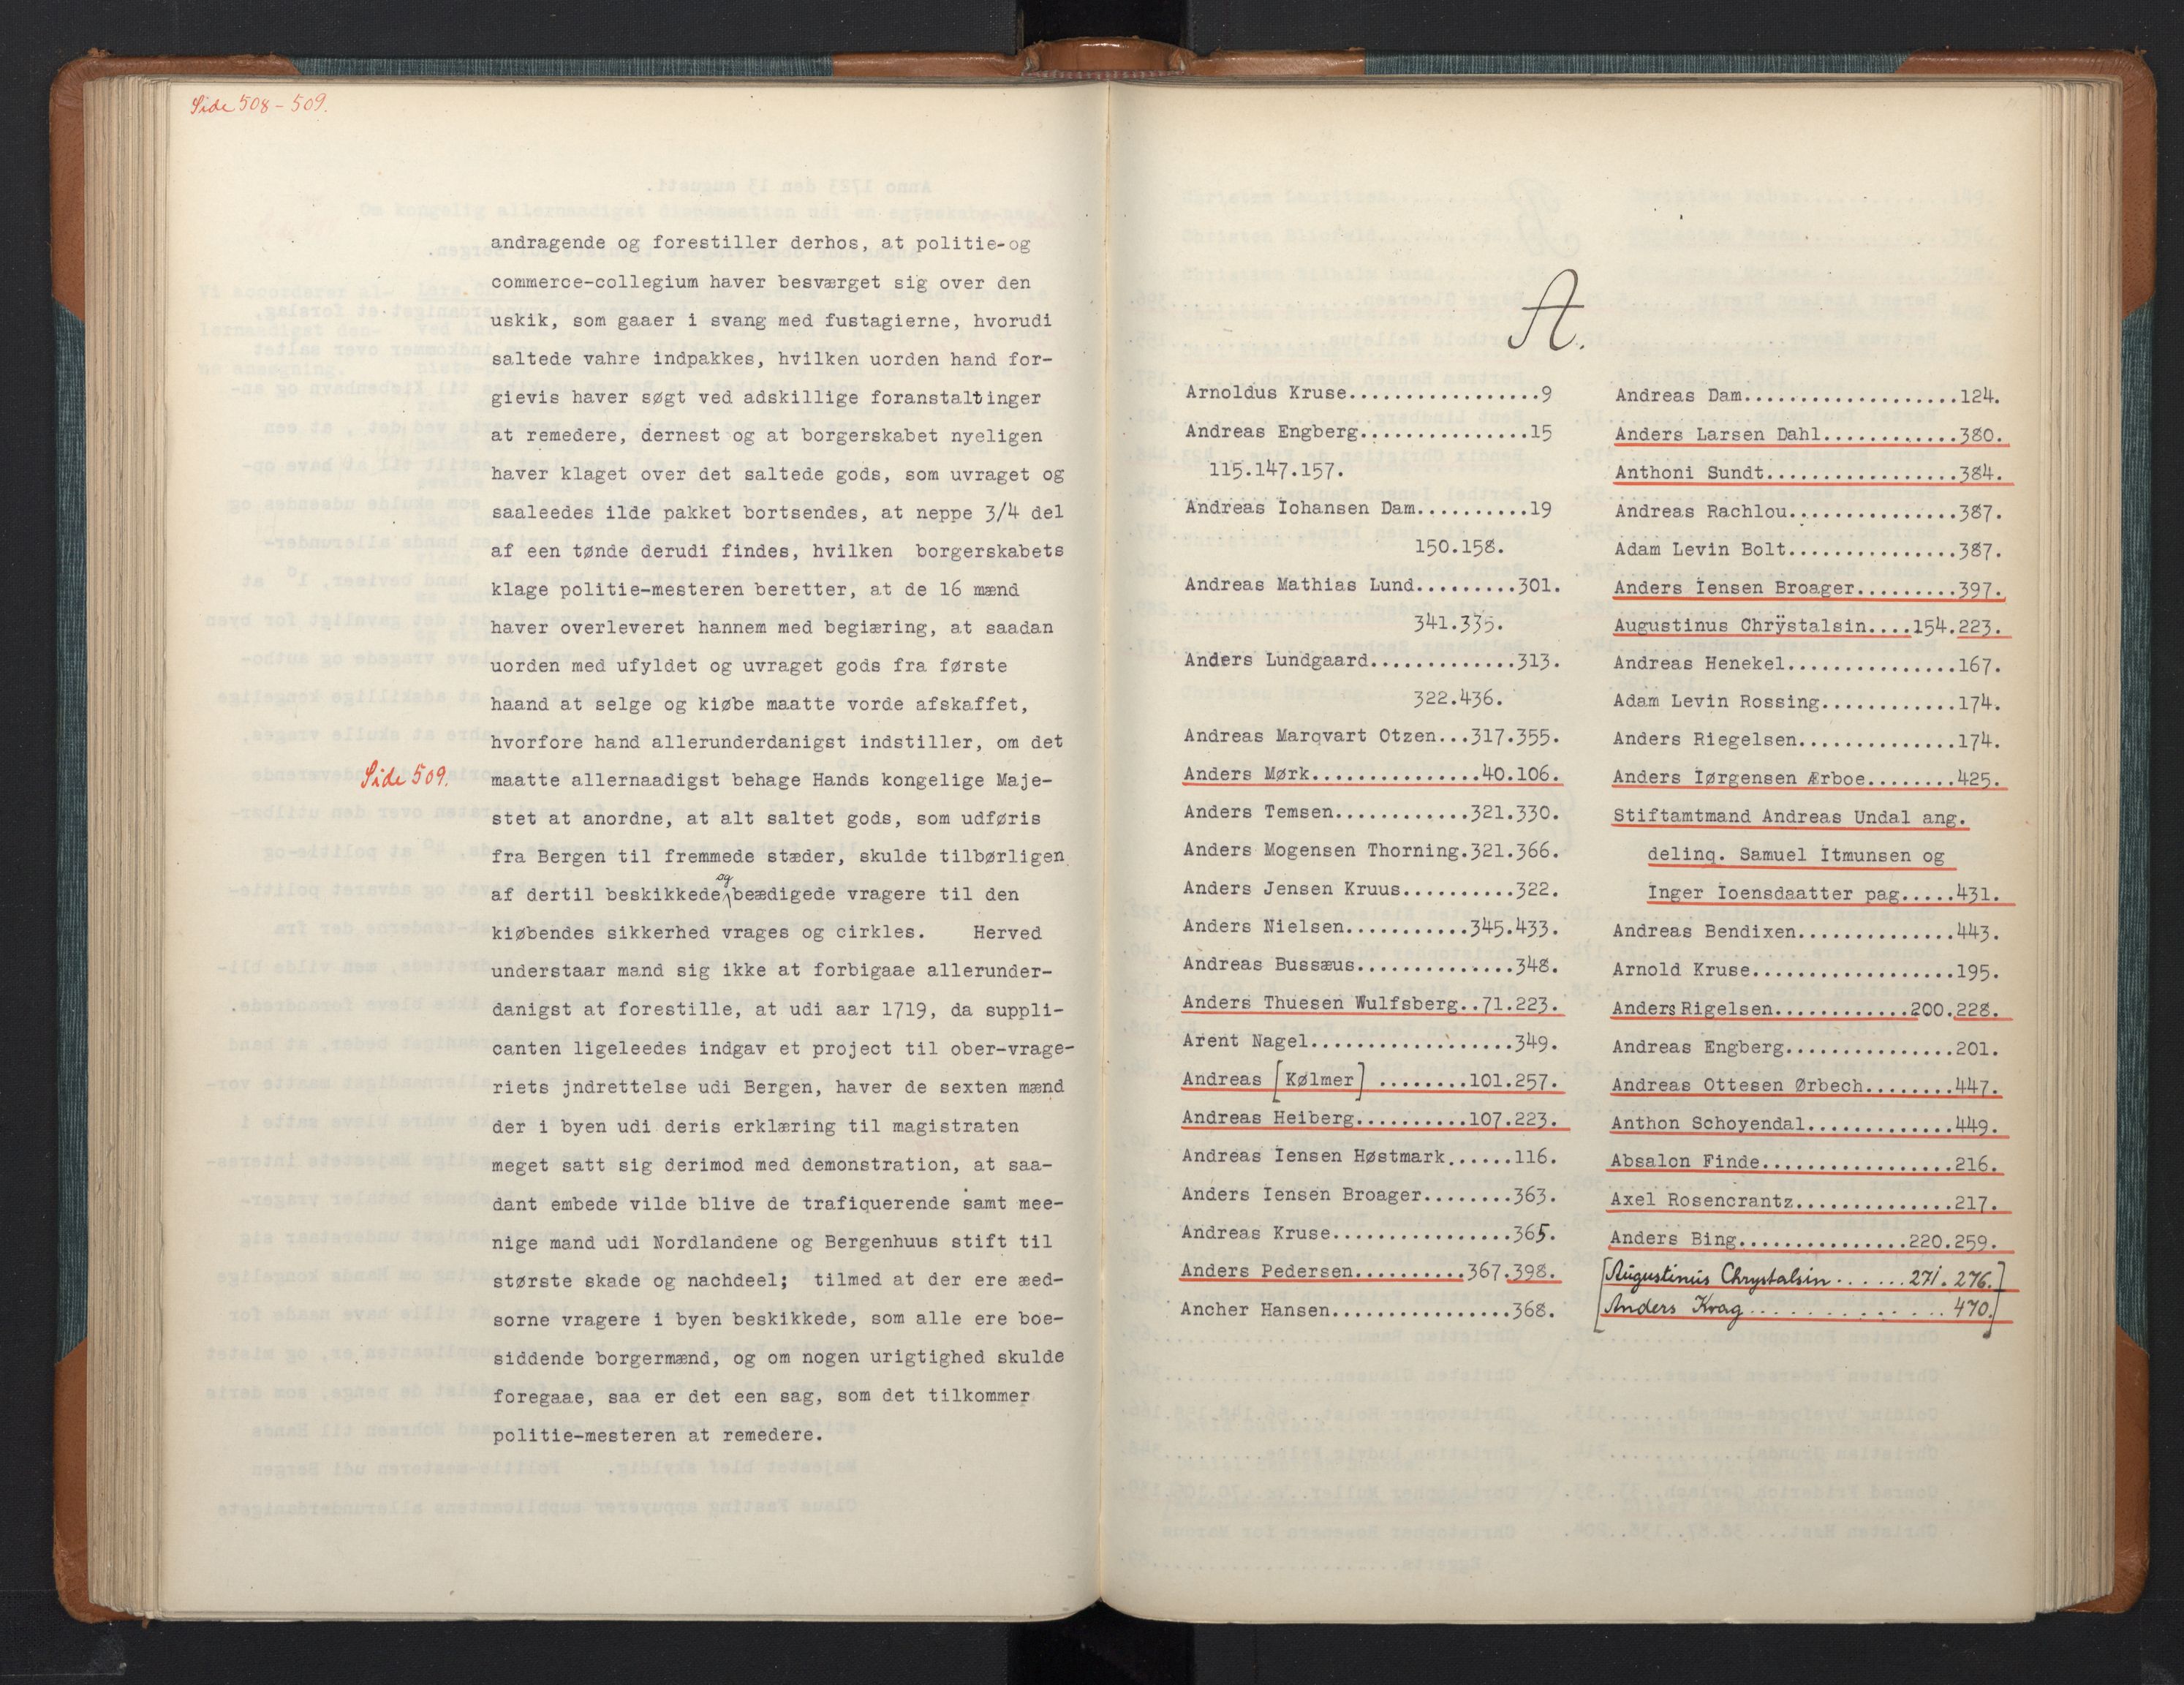 Side 508 - 509.
andragende og forestiller derhos, at politie-og
commerce-collegium haver besværget sig over den
uskik, som gaaer i svang med fustagierne, hvorudi
saltede vahre indpakkes, hvilken uorden hand for-
gievis haver søgt ved adskillige foranstaltinger
at remedere, dernest og at borgerskabet nyeligen
haver klaget over det saltede gods, som uvraget og
saaleedes ilde pakket bortsendes, at neppe 3/4 del
af een tønde derudi findes, hvilken borgerskabets
klage politie-mesteren beretter, at de 16 mænd
haver overleveret hannem med begiæring, at saadan
uorden med ufyldet og uvraget gods fra første
haand at selge og kiøbe maatte vorde afskaffet,
hvorfore hand allerunderdanigst indstiller, om det
Side 509.
maatte allernaadigst behage Hands kongelige Maje-
stet at anordne, at alt saltet gods, som udføris
fra Bergen til fremmede stæder, skulde tilbørligen
af dertil beskikkede og beædigede vragere til den
kiøbendes sikkerhed vrages og cirkles. Herved
understaar mand sig ikke at forbigaae allerunder-
danigst at forestille, at udi aar 1719, da suppli-
canten ligeleedes indgav et project til ober-vrage-
riets jndrettelse udi Bergen, haver de sexten mænd
der i byen udi deris erklæring til magistraten
meget satt sig derimod med demonstration, at saa-
dant embede vilde blive de trafiquerende samt mee-
nige mand udi Nordlandene og Bergenhuus stift til
største skade og nachdeel; tilmed at der ere æed-
sorne vragere i byen beskikkede, som alle ere boe-
siddende borgermænd, og om nogen urigtighed skulde
foregaae, saa er det een sag, som det tilkommer
politie-mesteren at remedere.
A.
Arnoldus Kruse.................9
Andreas Engberg...............15
115.147.157.
Andreas Iohansen Dam..........19
150.158.
Andreas Mathias Lund.........301.
341.335.
Anders Lundgaard.............313.
322.436.
Andreas Marqvart Otzen...317.355.
Anders Mørk...............40.106.
Anders Temsen............321.330.
Anders Mogensen Thorning.321.366.
Anders Jensen Kruus..........322.
Anders Nielsen...........345.433.
Andreas Bussæus..............348.
Anders Thuesen Wulfsberg..71.223.
Arent Nagel..................349.
Andreas [Kølmer] ........101.257.
Andreas Heiberg..........107.223.
Andreas Iensen Høstmark......116.
Anders Iensen Broager........363.
Andreas Kruse................365.
Anders Pedersen..........367.398.
Ancher Hansen................368.
Andreas Dam...................124.
Anders Larsen Dahl............380.
Anthoni Sundt.................384.
Andreas Rachlou...............387.
Adam Levin Bolt...............387.
Anders Iensen Broager.........397.
Augustinus Chrÿstalsin....154.223.
Andreas Henekel...............167.
Adam Levin Rossing............174.
Anders Riegelsen..............174.
Anders Iørgensen Ærboe........425.
Stiftamtmand Andreas Undal ang.
delinq. Samuel Itmunsen og
Inger Ioensdaatter pag.....431.
Andreas Bendixen..............443.
Arnold Kruse..................195.
Anders Rigelsen............200.228.
Andreas Engberg...............201.
Andreas Ottesen Ørbech........447.
Anthon Schoyendal.............449.
Absalon Finde.................216.
Axel Rosencrantz..............217.
Anders Bing...............220.259.
[Augustinus Chrystalsin......271.276.]
[Anders Krag.............470.]